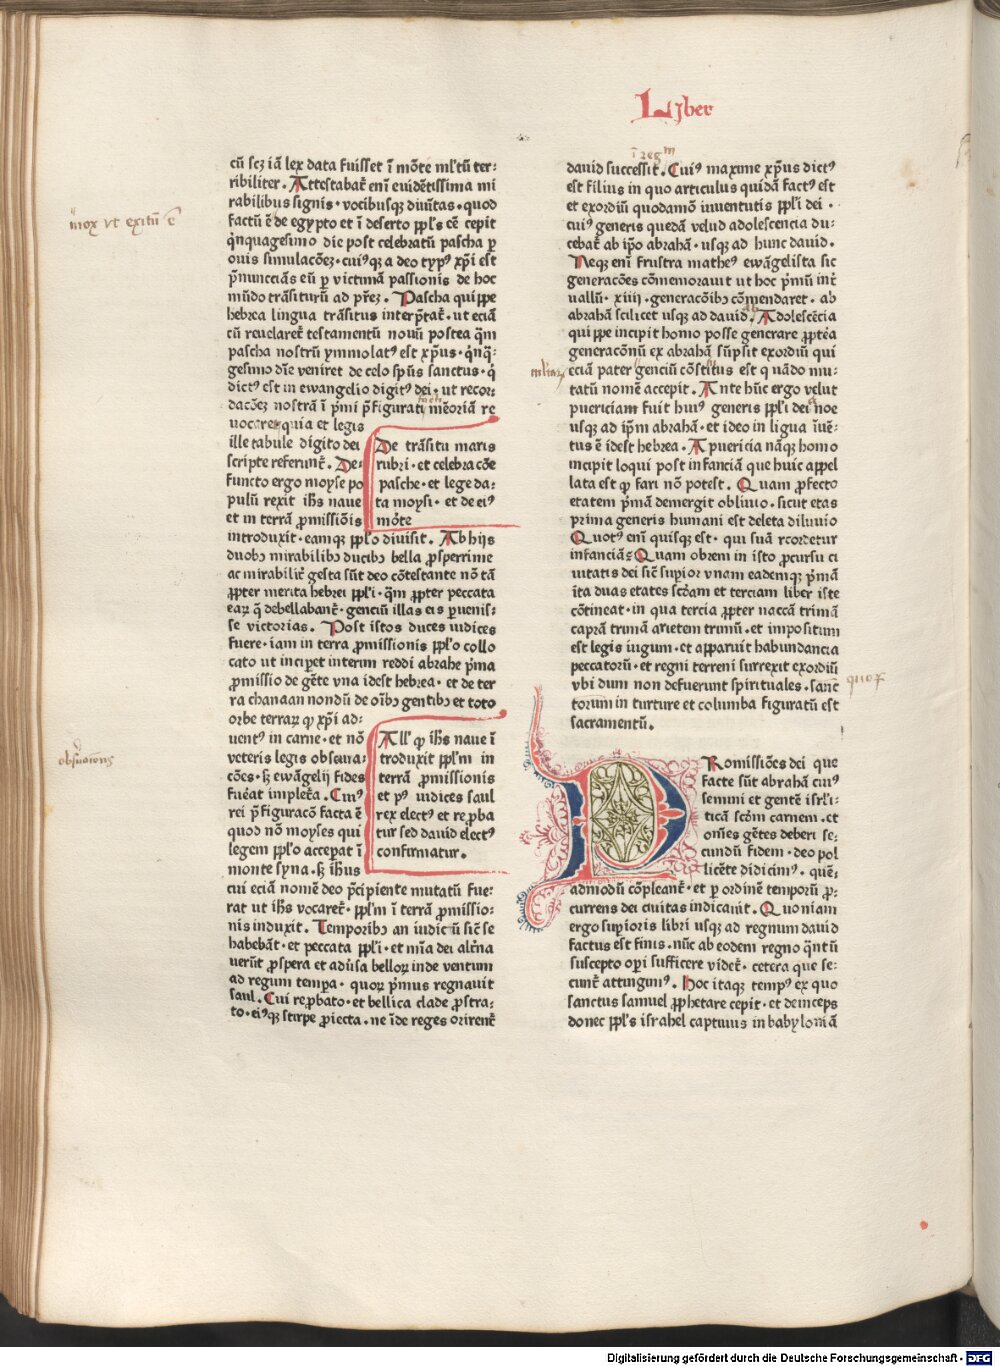 Lyber
cū scz iā lex data fuisset ī mōte ml'tū ter-
ribiliter. Attestabat̄ enī euidētissima mi
rabilibus signis · vocibusqȝ diuītas · quod
factū ē de egypto et ī deserto ppl's cē cepit
q̇nquagesimo die post celebratū pascha p
ouis simulacōeȝ · cui⁹qȝ a deo typ⁹ xp̄i est
p̄nunccias eū p victimā passionis de hoc
mūdo trāsiturū ad p̄reȝ. Pascha quippe
hebrea lingua trāsitus interp̄tat̄ · ut eciā
cū reuelaret̄ testamentū nouū postea q̄m
pascha nostrū ymmolat⁹ est xp̄us · q̇nq̄-
gesimo dīe veniret de celo sp̄us sanctus · q̇
dict⁹ est in ewangelio digit⁹ dei · ut recor-
dacōeȝ nostrā ī p̄mi p̄figurati mēoriā re
uocaret quia et legis
ille tabule digito dei
scripte referunt̄. De-
functo ergo moyse po
pulū rexit ih̄s naue
et in terrā ꝓmissiōis
introduxit · eamqȝ ppl'o diuisit. Ab hijs
duobȝ mirabilibȝ ducibȝ bella ꝓsperrime
ac mirabilit̄ gesta sūt deo cōtestante nō tā
ꝓpter merita hebrei ppl'i · q̄m ꝓpter peccata
eaꝝ q̄ debellabant̄ · genciū illas eis puenis-
se victorias. Post istos duces iudices
fuere · iam in terra ꝓmissionis ppl'o collo
cato ut inciperet interim reddi abrahe p̄ma
ꝓmissio de gēte vna idest hebrea · et de ter
ra chanaan nondū de oībȝ gentibȝ et toto
orbe terraꝝ qꝫ xp̄i ad-
uent⁹ in carne · et nō
veteris legis obseruа-
cōes · sȝ ewāgelij fides
fuerat impletа. Cui⁹
rei p̄figuracō facta ē
quod nō moyses qui
legem ppl'o acceperat ī
monte syna · sȝ ih̄us
cui eciā nomē deo p̄cipiente mutatū fue-
rat ut ih̄s vocaret̄ · ppl'm ī terrā ꝓmissio-
nis induxit. Temporibȝ an iudicū sic̄ se
habebāt · et peccata ppl'i · et mīa dei alt̄na
uerūt ꝓspera et aduīsa belloꝝ inde ventum
ad regum tempora · quoꝝ p̄mus regnauit
saul. Cui reprobato · et bellica clade ꝓstra-
to · ei⁹qȝ stirpe ꝓiecta · ne īde reges orirent̄
De trāsitu maris
rubri · et celebracōe
pasche · et lege da-
ta moysi · et de ei⁹
morte
All' qꝫ ih̄s naue ī
troduxit ppl'm in
terrā ꝓmissionis
et p⁹ iudices saul
rex elect⁹ et reꝓba
tur sed dauid elect⁹
confirmatur.
mox ut exitū ē
obseruacionis
ī regnū
dauid successit. Cui⁹ maxime xp̄us dict⁹
est filius in quo articulus quidā fact⁹ est
et exordiū quodamō iuuentutis ppl'i dei ·
cui⁹ generis quedā velud adolescencia du-
cebat̄ ab ip̄o abrahā · usqȝ ad hunc dauid.
Neqȝ enī frustra mathe⁹ ewāgelista sic
generacōes cōmemorauit ut hoc p̄mū int̄
uallū · xiiij · generacōibȝ cōmendaret · ab
abrahā scilicet usqȝ ad dauid. Ab Adolescēcia
quippe incipit homo posse generare ꝓpterea
generacōnū ex abrahā sūpsit exordiū qui
eciā pater genciū cōstitutus est quādo mu-
tatū nomē accepit. Ante hūc ergo velut
puericiam fuit hui⁹ generis ppl'i dei a noe
usqȝ ad ip̄m abrahā · et ideo in ligua īuē-
tus ē idest hebrea. A puericia nāqȝ homo
incipit loqui post infanciā que huic appel
lata est qꝫ fari nō potest. Quam ꝓfecto
etatem p̄mā demergit obliuio · sicut etas
prima generis humani est deleta diluuio
Quot⁹ enī quisqȝ est · qui suā recordetur
infanciā? Quam obrem in isto ꝓcursu ci
uitatis dei sic̄ supior vnam eademqȝ p̄mā
īta duas etates scd̄am et terciam liber iste
cōtineat · in qua tercia ꝓpter naccā trimā
caprā trimā arietem trimū · et impositum
est legis iugum · et apparuit habundancia
peccatorū · et regni terreni surrexit exordiū
vbi dum non defuerunt spirituales · sanc̄
torum in turture et columba figuratū est
sacramentū.
quoꝝ
PRomissiōes dei que
facte sūt abrahā cui⁹
semini et gentē isrl'i-
ticā scd̄m carnem · et
om̄es gētes deberi se-
cundū fidem · deo pol
licēte didicim⁹ · quē-
admodū cōpleant̄ · et p ordinē temporū ꝓ-
currens dei ciuitas indicauit. Quoniam
ergo superioris libri usqȝ ad regnum dauid
factus est finis · nūc ab eodem regno q̄ntū
suscepto operi sufficere videt̄ · cetera que se-
cunt̄ attingim⁹. Hoc itaqȝ temp⁹ ex quo
sanctus samuel ꝓphetare cepit · et deinceps
donec ppl's israhel captiuus in babyloniā
Digitalisierung gefördert durch die Deutsche Forschungsgemeinschaft - DFG